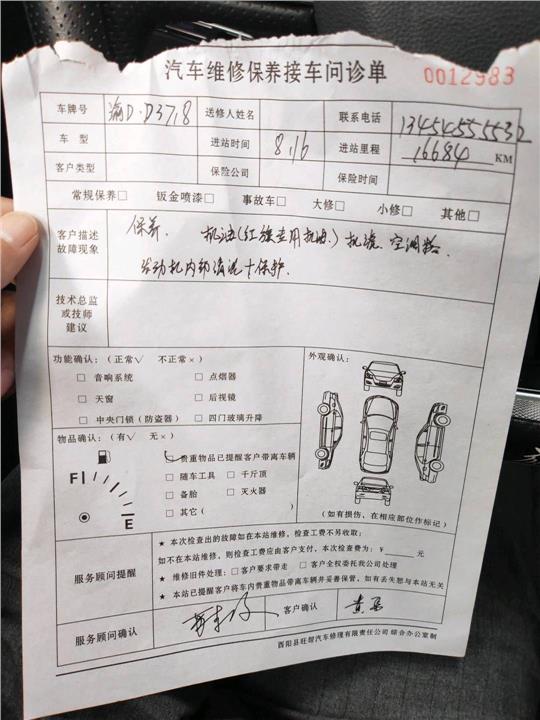 汽车维修保养接车问诊单
0012983
车牌号 渝D·D37,8 送修人姓名 联系电话
车型 进站时间 8,16 进站里程 16684 KM
客户类型 保险公司 保险时间
常规保养□ 钣金喷漆□ 事故车□ 大修□ 小修□ 其他□
客户描述
故障现象
保养. 机油(红旗专用机油.) 机滤. 空调格.
发动机内部清洗+保护.
技术总监
或技师
建议
功能确认:(正常√ 不正常×) 外观确认:
□ 音响系统 □ 点烟器
□ 天窗 □ 后视镜
□ 中央门锁(防盗器) □ 四门玻璃升降
物品确认:(有√ 无×)
贵重物品已提醒客户带离车辆
□ 随车工具 □ 千斤顶
□ 备胎 □ 灭火器
□ 其它( )
F
E
(如有损伤,在相应部位作标记)
服务顾问提醒
★ 本次检查出的故障如在本站维修,检查工费不另收取;
如不在本站维修,则检查工费应由客户支付,本次检查费为:¥ 元
★ 维修旧件处理:□ 客户要求带走 □ 客户全权委托我公司处理
★ 本站已提醒客户将车内贵重物品带离车辆并妥善保管,如有丢失恕与本站无关
服务顾问确认 客户确认
酉阳县旺郜汽车修理有限责任公司 综合办公室制